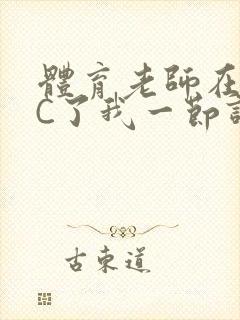 體育老師在
C了我一節
古東道